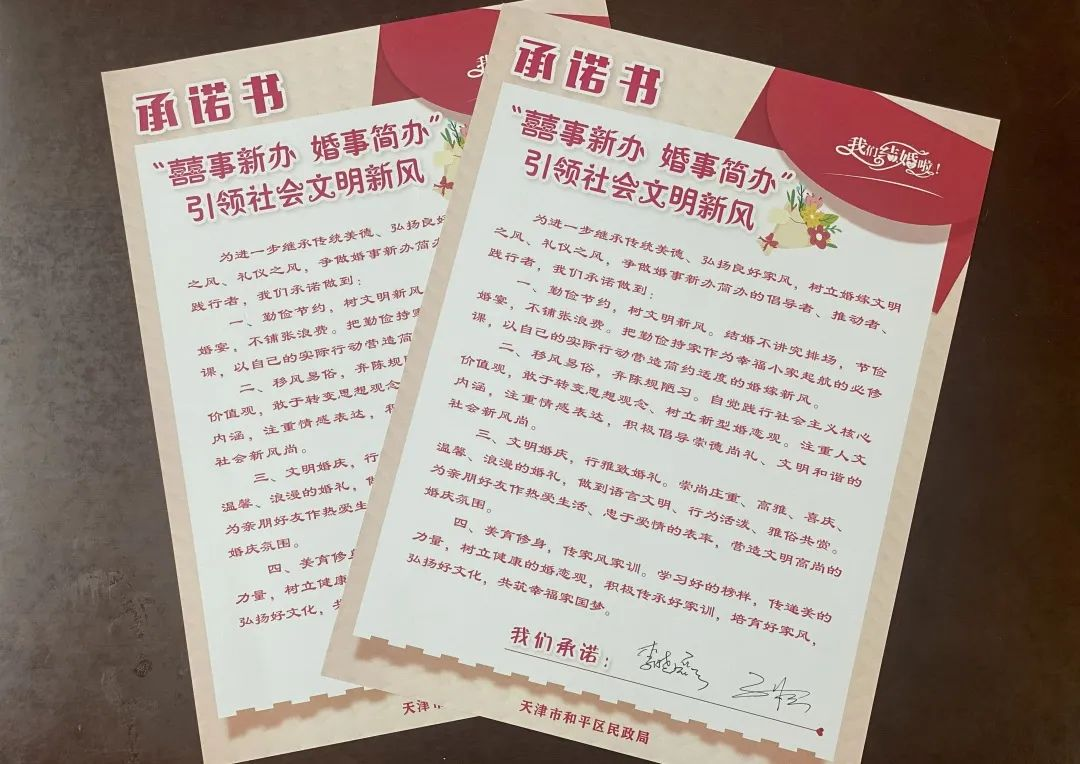 承诺书
“囍事新办 婚事简办”
引领社会文明新风
为进一步继承传统美德、弘扬良好
之风、礼仪之风，争做婚事新办简办
践行者，我们承诺做到：
一、勤俭节约，树文明新风
婚宴，不铺张浪费。把勤俭持
课，以自己的实际行动营造简
二、移风易俗，弃陈规
价值观，敢于转变思想观念
内涵，注重情感表达，积
社会新风尚。
三、文明婚庆，行
温馨、浪漫的婚礼，做
为亲朋好友作热爱生
婚庆氛围。
四、美育修身
力量，树立健康
弘扬好文化，共
天津市
承诺书
我们结婚啦！
“囍事新办 婚事简办”
引领社会文明新风
为进一步继承传统美德、弘扬良好家风，树立婚嫁文明
之风、礼仪之风，争做婚事新办简办的倡导者、推动者、
践行者，我们承诺做到：
一、勤俭节约，树文明新风。结婚不讲究排场，节俭
婚宴，不铺张浪费。把勤俭持家作为幸福小家起航的必修
课，以自己的实际行动营造简约适度的婚嫁新风。
二、移风易俗，弃陈规陋习。自觉践行社会主义核心
价值观，敢于转变思想观念、树立新型婚恋观。注重人文
内涵，注重情感表达，积极倡导崇德尚礼、文明和谐的
社会新风尚。
三、文明婚庆，行雅致婚礼。崇尚庄重、高雅、喜庆、
温馨、浪漫的婚礼，做到语言文明、行为活泼、雅俗共赏。
为亲朋好友作热爱生活、忠于爱情的表率，营造文明高尚的
婚庆氛围。
四、美育修身，传家风家训。学习好的榜样，传递美的
力量，树立健康的婚恋观，积极传承好家训，培育好家风，
弘扬好文化，共筑幸福家国梦。
我们承诺：
天津市和平区民政局